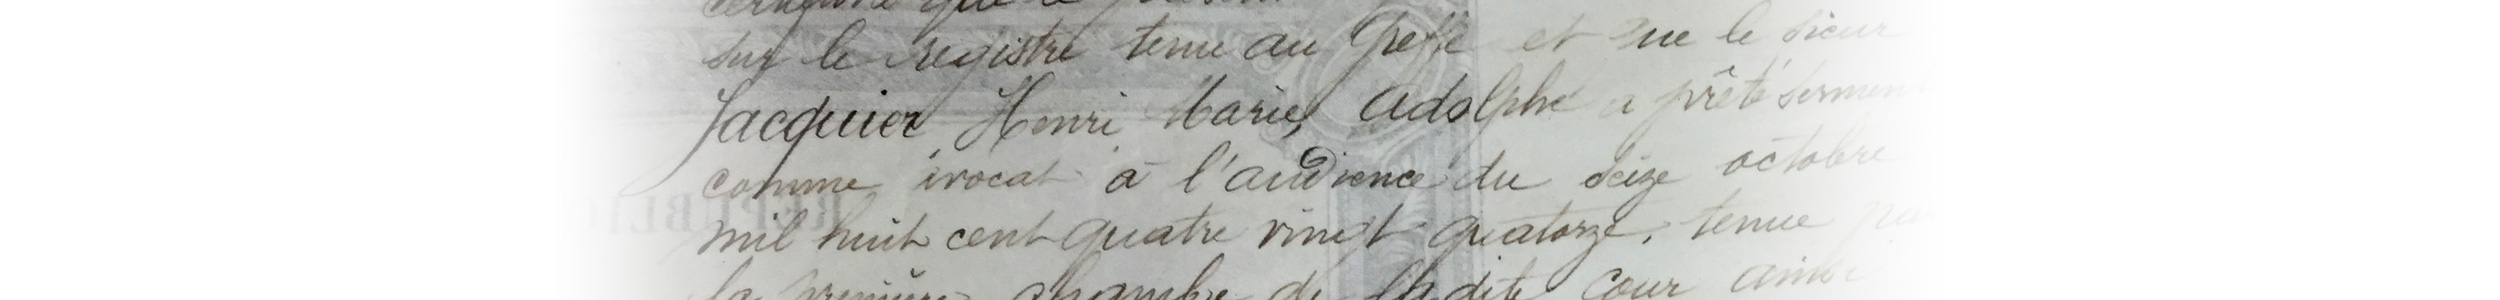 sur le registre tenu au Greffe et que le sieur
Jacquier Henri Marie, Adolphe a prêté serment
comme avocat à l'audience du seize octobre
mil huit cent quatre vingt quatorze, tenue par
la première chambre de ladite Cour ainsi